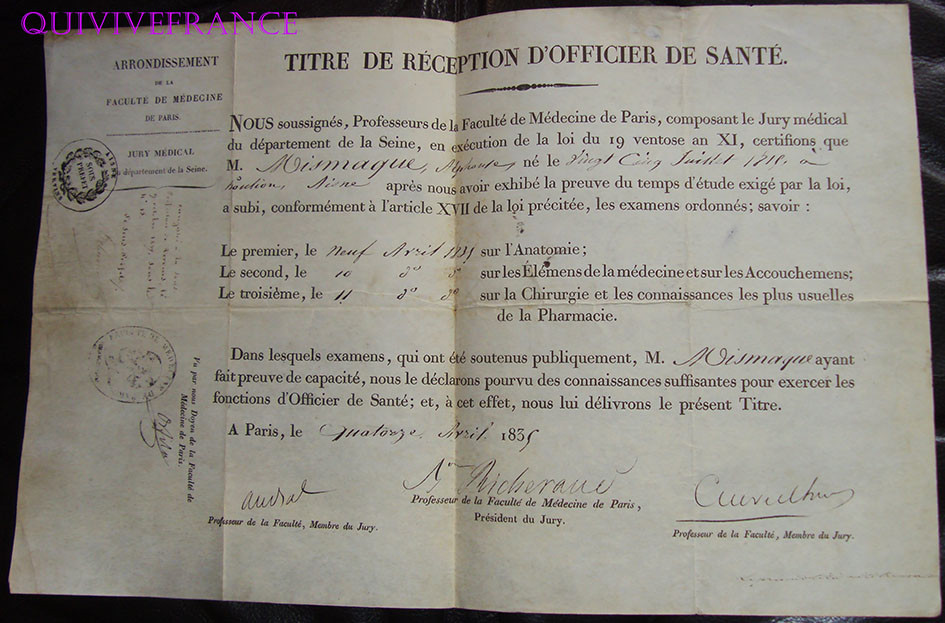 QUIVIVEFRANCE
TITRE DE RÉCEPTION D'OFFICIER DE SANTÉ.
ARRONDISSEMENT
DE LA
FACULTE DE MÉDECINE
DE PARIS.
JURY MÉDICAL
du département de la Seine.
SOUS
PREFET
NOUS soussignés, Professeurs de la Faculté de Médecine de Paris, composant le Jury médical
du département de la Seine, en exécution de la loi du 19 ventose an XI, certifions que
M. Mismaque, Alphonse, né le Vingt Cinq Juillet 1810 a
Aisne après nous avoir exhibé la preuve du temps d'étude exigé par la loi,
a subi, conformément à l'article XVII de la loi précitée, les examens ordonnés; savoir :
Le premier, le Neuf Avril 1835 sur l'Anatomie;
Le second, le 10 do do sur les Élémens de la médecine et sur les Accouchemens;
Le troisième, le 11 do do sur la Chirurgie et les connaissances les plus usuelles
de la Pharmacie.
Dans lesquels examens, qui ont été soutenus publiquement, M. Mismaque ayant
fait preuve de capacité, nous le déclarons pourvu des connaissances suffisantes pour exercer les
fonctions d'Officier de Santé; et, à cet effet, nous lui délivrons le présent Titre.
A Paris, le Quatorze Avril 1835
Vu par nous Doyen de la Faculté de
Médecine de Paris.
Orfila
Andral
Professeur de la Faculté, Membre du Jury.
Bon Richerand
Professeur de la Faculté de Médecine de Paris,
Président du Jury.
Cruveilhier
Professeur de la Faculté, Membre du Jury.